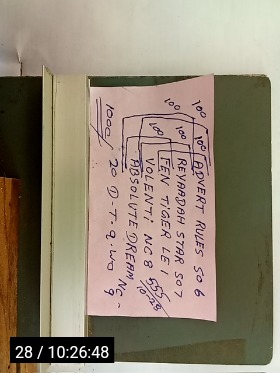 100 100
100 100 100
ADVERT RULES SO 6
REYAADAH STAR SO 7
TEEN TIGER LE 1
VOLENTI NC 8
ABSOLUTE DREAM NC - 9
555/
10-29
1000/ 20 D-T-Q. WO
28 / 10:26:48